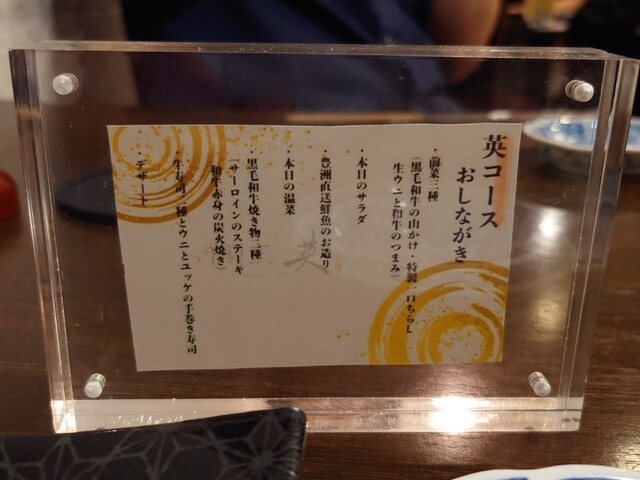 英コース
おしながき
・前菜三種
（黒毛和牛の山かけ・特製一口ちらし
生ウニと和牛のつまみ）
・本日のサラダ
・豊洲直送鮮魚のお造り
・本日の温菜
・黒毛和牛焼き物二種
（サーロインのステーキ
和牛赤身の炭火焼き）
・牛寿司二種とウニとユッケの手巻き寿司
・デザート
英